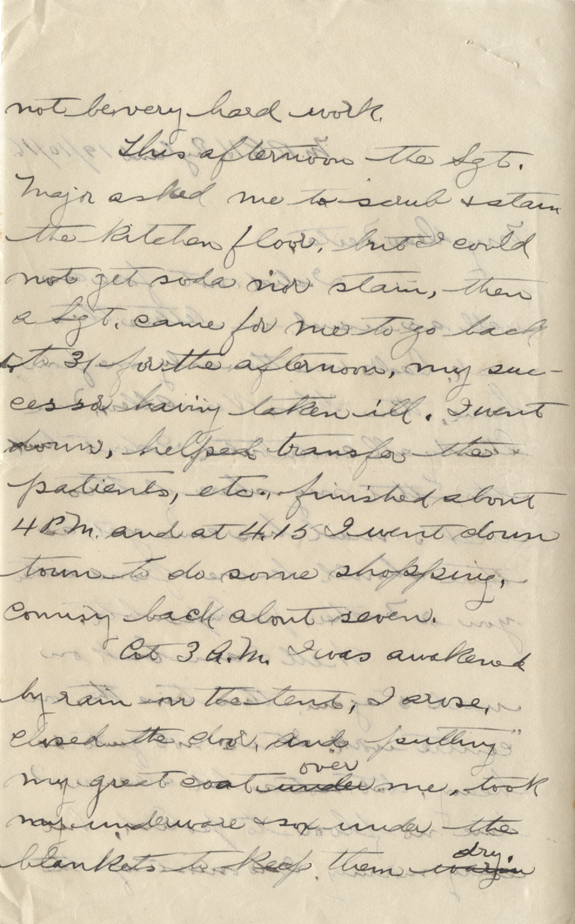 not be very hard work.
This afternoon the Sgt.
Major asked me to scrub & stain
the kitchen floor, but I could
not get soda nor stain, then
a Sgt. came for me to go back
to 31 for the afternoon, my suc-
cessor having taken ill. I went
down, helped transfer the
patients, etc., finished about
4 P.M. and at 4.15 I went down
town to do some shopping,
coming back about seven.
At 3 A.M. I was awakened
by rain on the tent, I arose,
closed the door, and putting
my great coat under over me, took
my underware & sox under the
blankets to keep them warm dry.